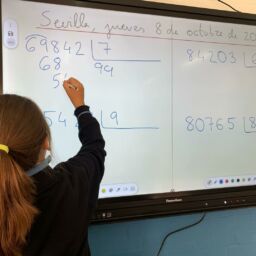 Sevilla, jueves 8 de octubre de 20
69842 7
68 99
5
84203 6
54 9
80765 8